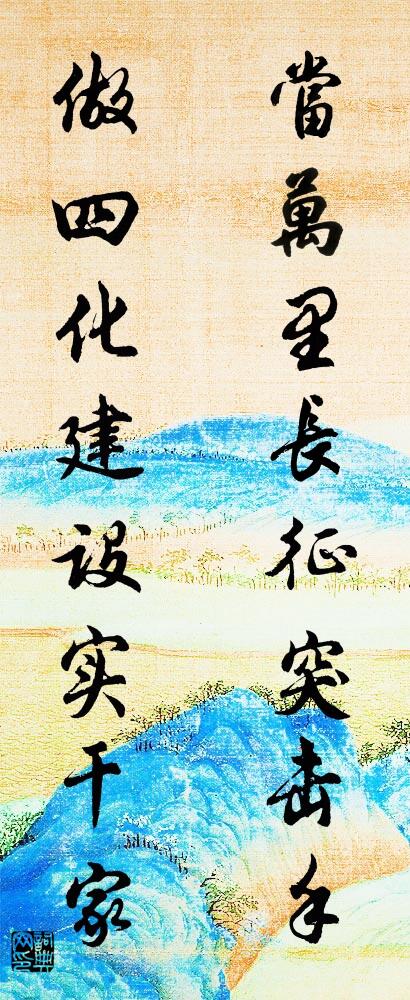 當萬里長征突击手
做四化建设实干家
詞典网印